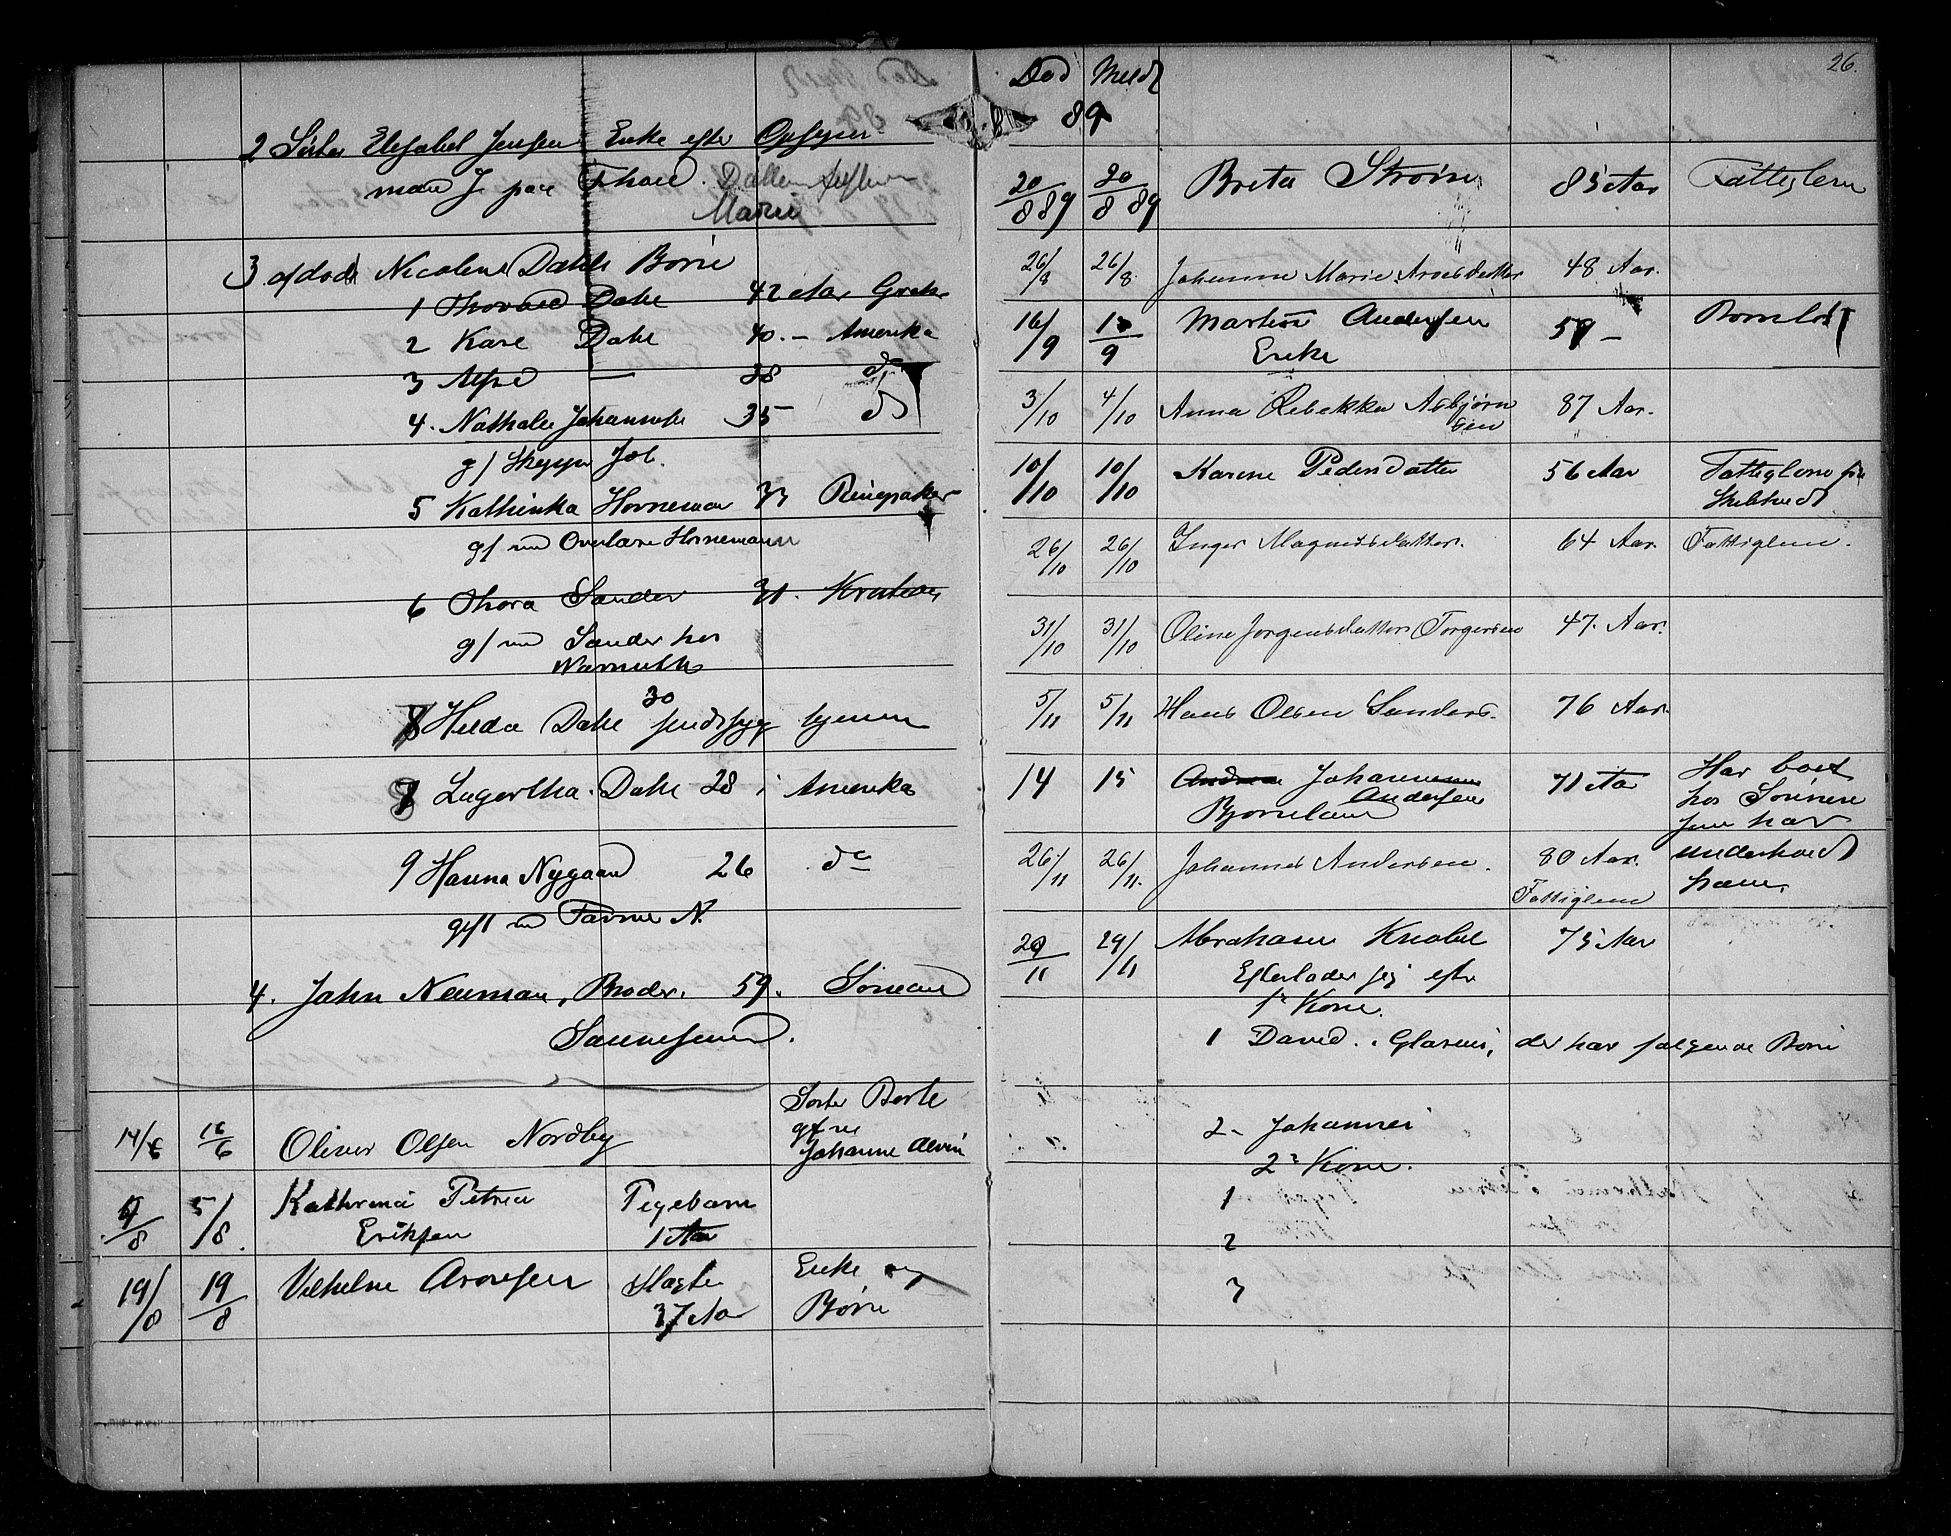 2 Søster Elisabet Jensen Enke efter Opsyns
mand J paa
Maren
3 afdøde Nicoline Dahls Børn
1 Thorvald Dahl 42 Aar
2 Karl Dahl 40 - Amerika
3 Alfred — 38 do
4. Nathalie Johannesen 35 do
g/ Skipper Joh.
5 Kathinka Horneman 33 Ringsaker
gf med Overlærer Hornemann
6 Thora Sander 31. Kristiania
gf med Sander hos
Warmuth
30
8 Hulda Dahl sindssyg hjemme
7 Lagertha Dahl 28 i Amerika
9 Hanna Nygaard 26 do
gift m Farmer N.
4. Jahn Neuman, Broder. 59.
Sannesund.
Søster Berte
14/6 16/6 Oliver Olsen Nordby gf m
Johanne Alvin
4/8 5/8 Kathrine Petrea Plejebarn
Eriksen 1 Aar
19/8 19/8 Vilhelm Aronsen Enke og
37 Aar Børn
26.
Død Meldt
89
20/8 89 20/8 89 Breta Strøm 85 Aar Fattiglem
26/8 26/8 Johanne Marie Aroesdatter 48 Aar.
16/9 Martin Andersen 59 - Barnløs
Enke
3/10 4/10 Anna Rebekka Asbjørn 87 Aar.
sen
10/10 10/10 Karine Pedersdatter 56 Aar Fattiglem fra
Skebtvedt
26/10 26/10 Inger Magnusdatter. 64 Aar. Fattiglem.
31/10 31/10 Oline Jørgensdatter Torgersen 47. Aar.
5/11 5/11 Hans Olsen Sanders. 76 Aar.
14 15 Andreas Johannesen 71 Aar Har boet
Andersen hos Sønnen
Bjørneland som har
26/11 26/11 Johannes Andersen. 80 Aar. underholdt
Fattiglem ham.
29/11 29/11 Abraham Knobel 75 Aar
Efterlader sig efter
1ste Kone.
1 David. i Glarus, der har følgende Børn
2. Johannes
2den Kone.
1
2
3